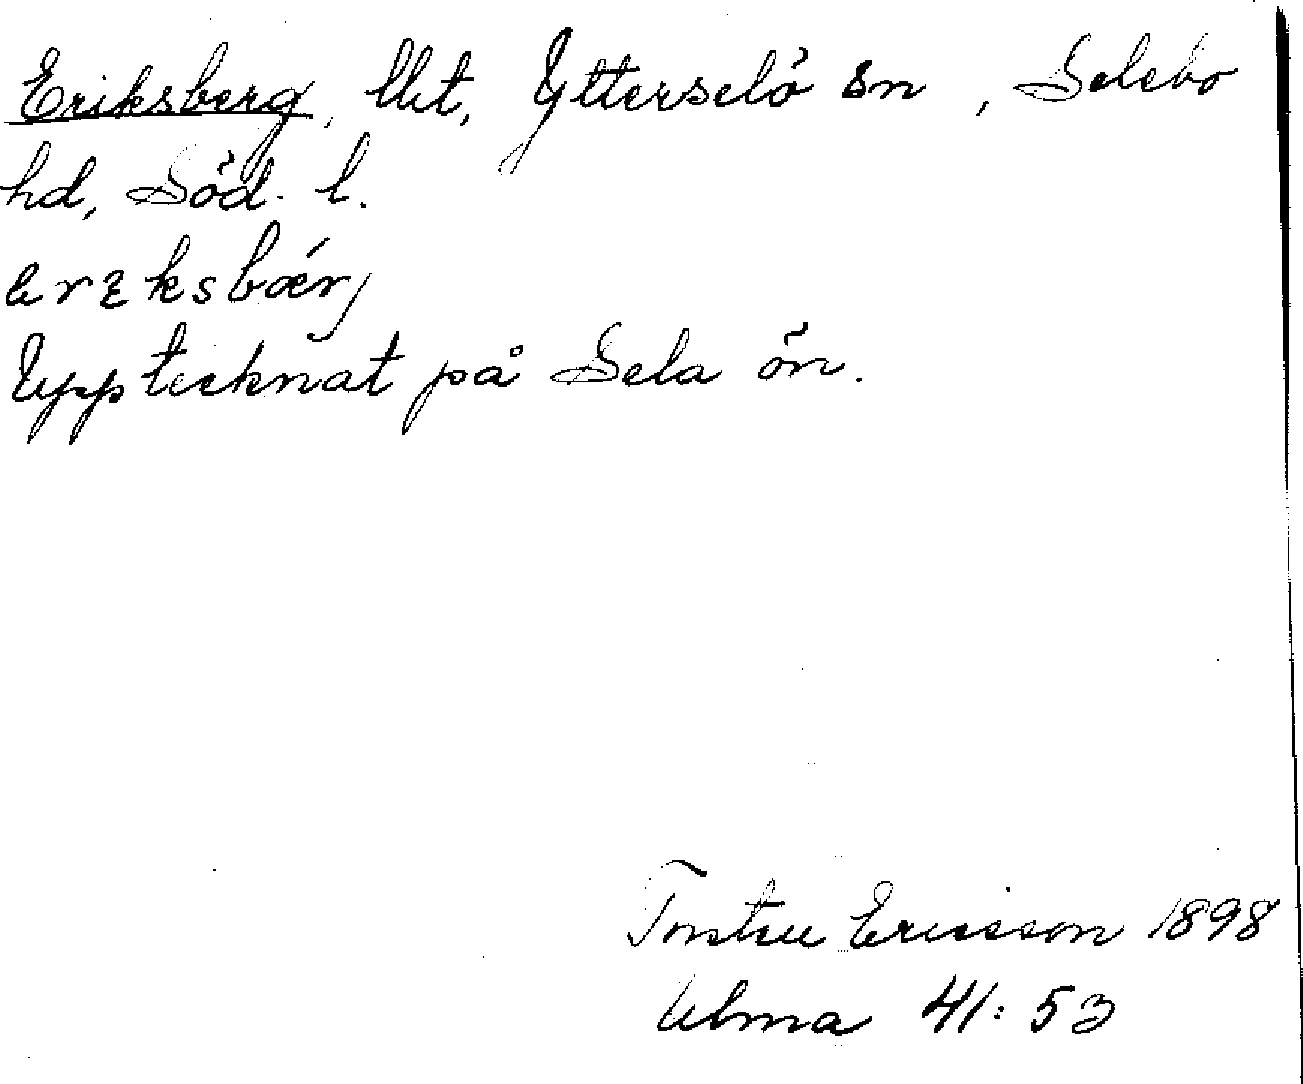 Eriksberg, llet, Ytterselö sn, Selebo
hd, Söd. l.
erıksbærj
Upptecknat på Sela ön.
Torsten Ericsson 1898
Ulma 41:53